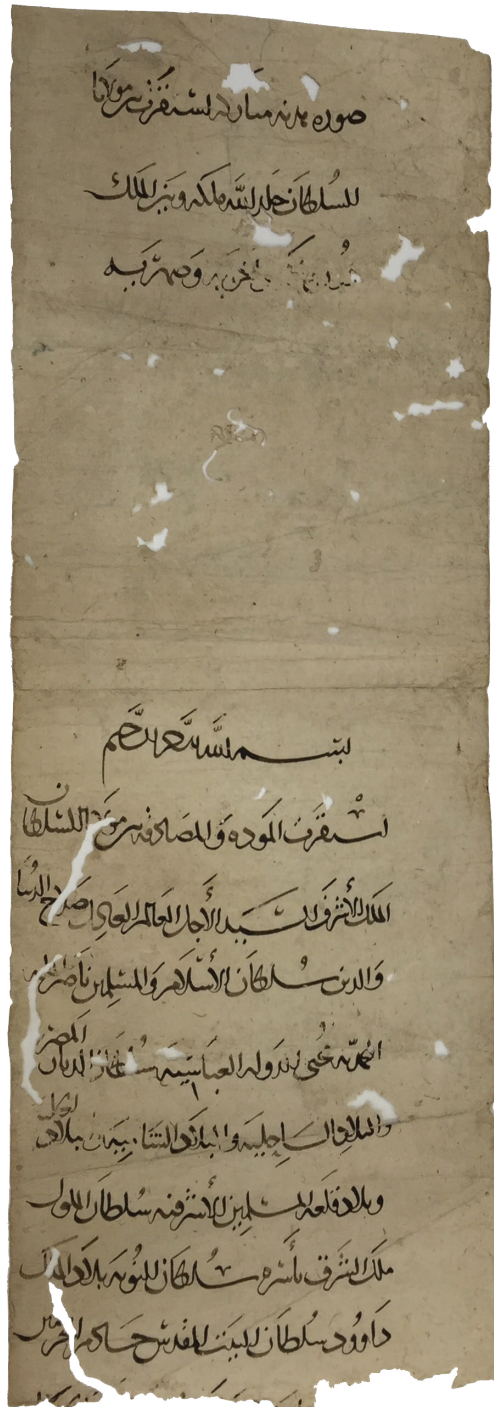 صورة هدنة مباركة استقرت بين مولانا
السلطان خلد الله ملكه وبين الملك
وصهريه
بسم الله الرحمن الرحيم
استقرت المودة والمصادقة بين مولانا السلطان
الملك الأشرف السيد الأجل العالم العادل صلاح الدنيا
والدين سلطان الأسلام والمسلمين ناصر الملة
المحمدية محيى الدولة العباسية سلطان الديار المصرية
والبلاد الساحلية والبلاد الشامية بلاد
وبلاد قلعة المسلمين الأشرفية سلطان الملوك
ملك الشرق بأسره سلطان النوبة بلاد الملك
داوود سلطان البيت المقدس خادم الحرمين